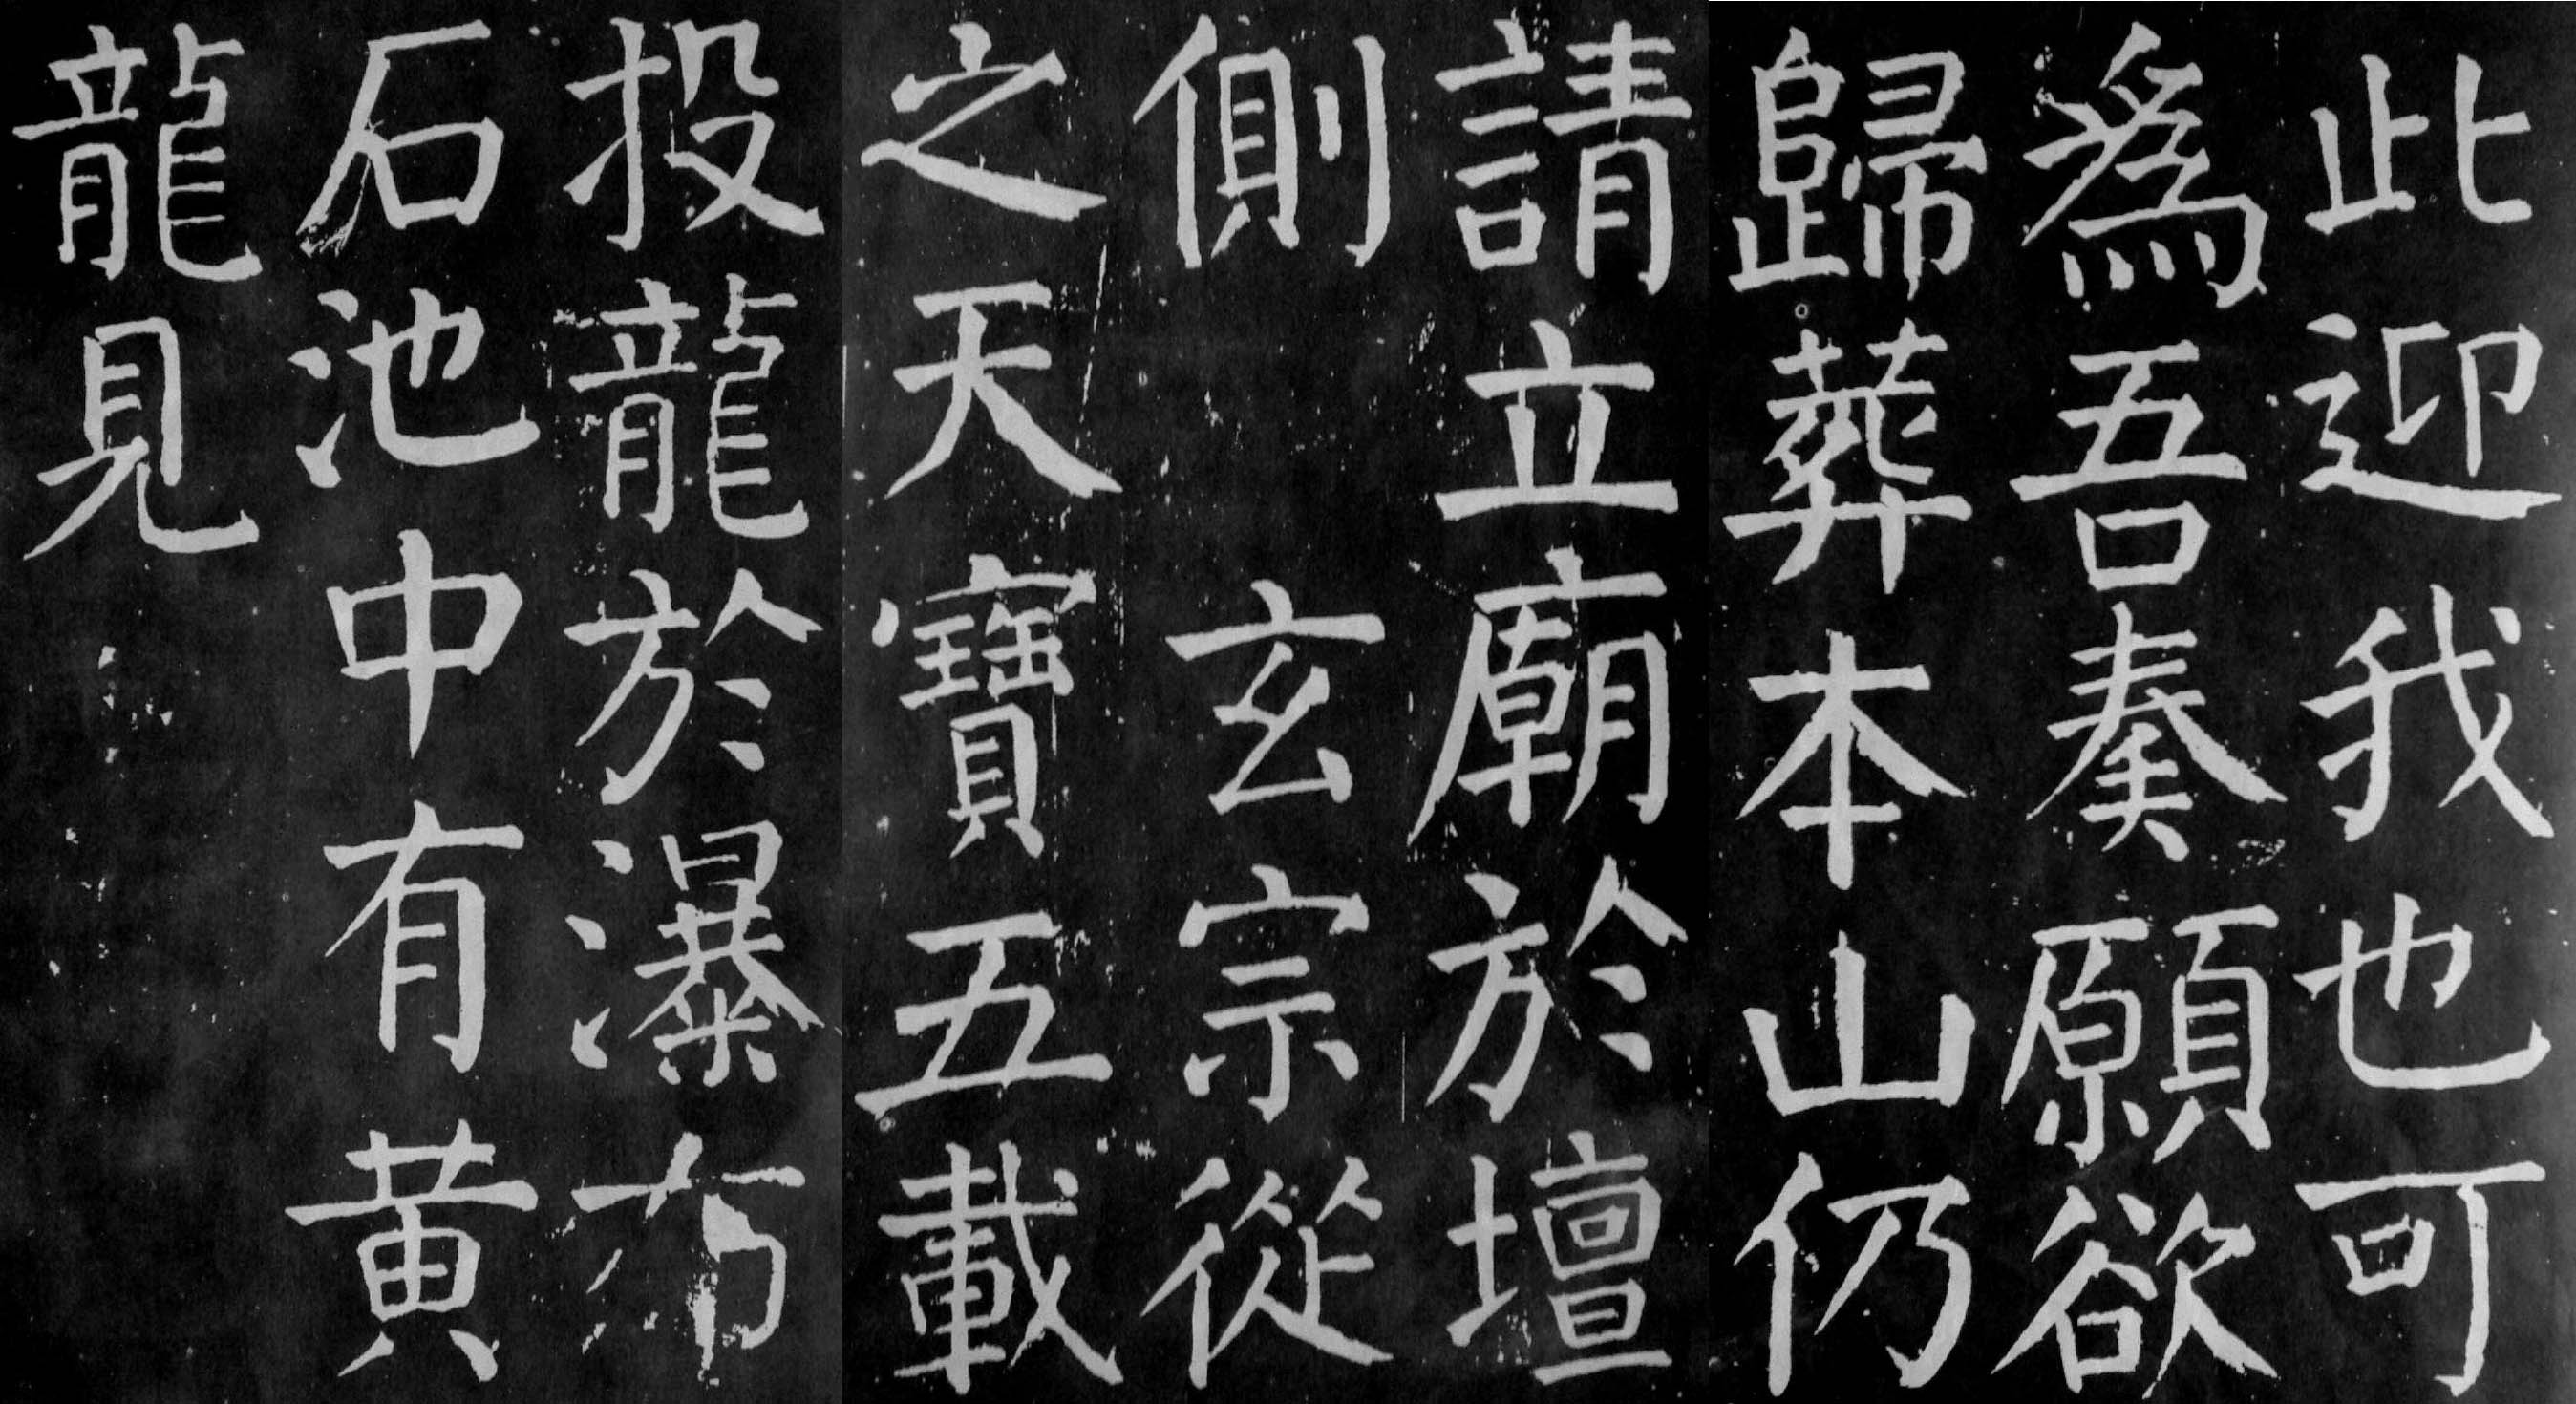 此迎我也可
為吾奏願欲
歸葬本山仍
請立廟於壇
側玄宗從
之天寶五載
投龍於瀑布
石池中有黃
龍見